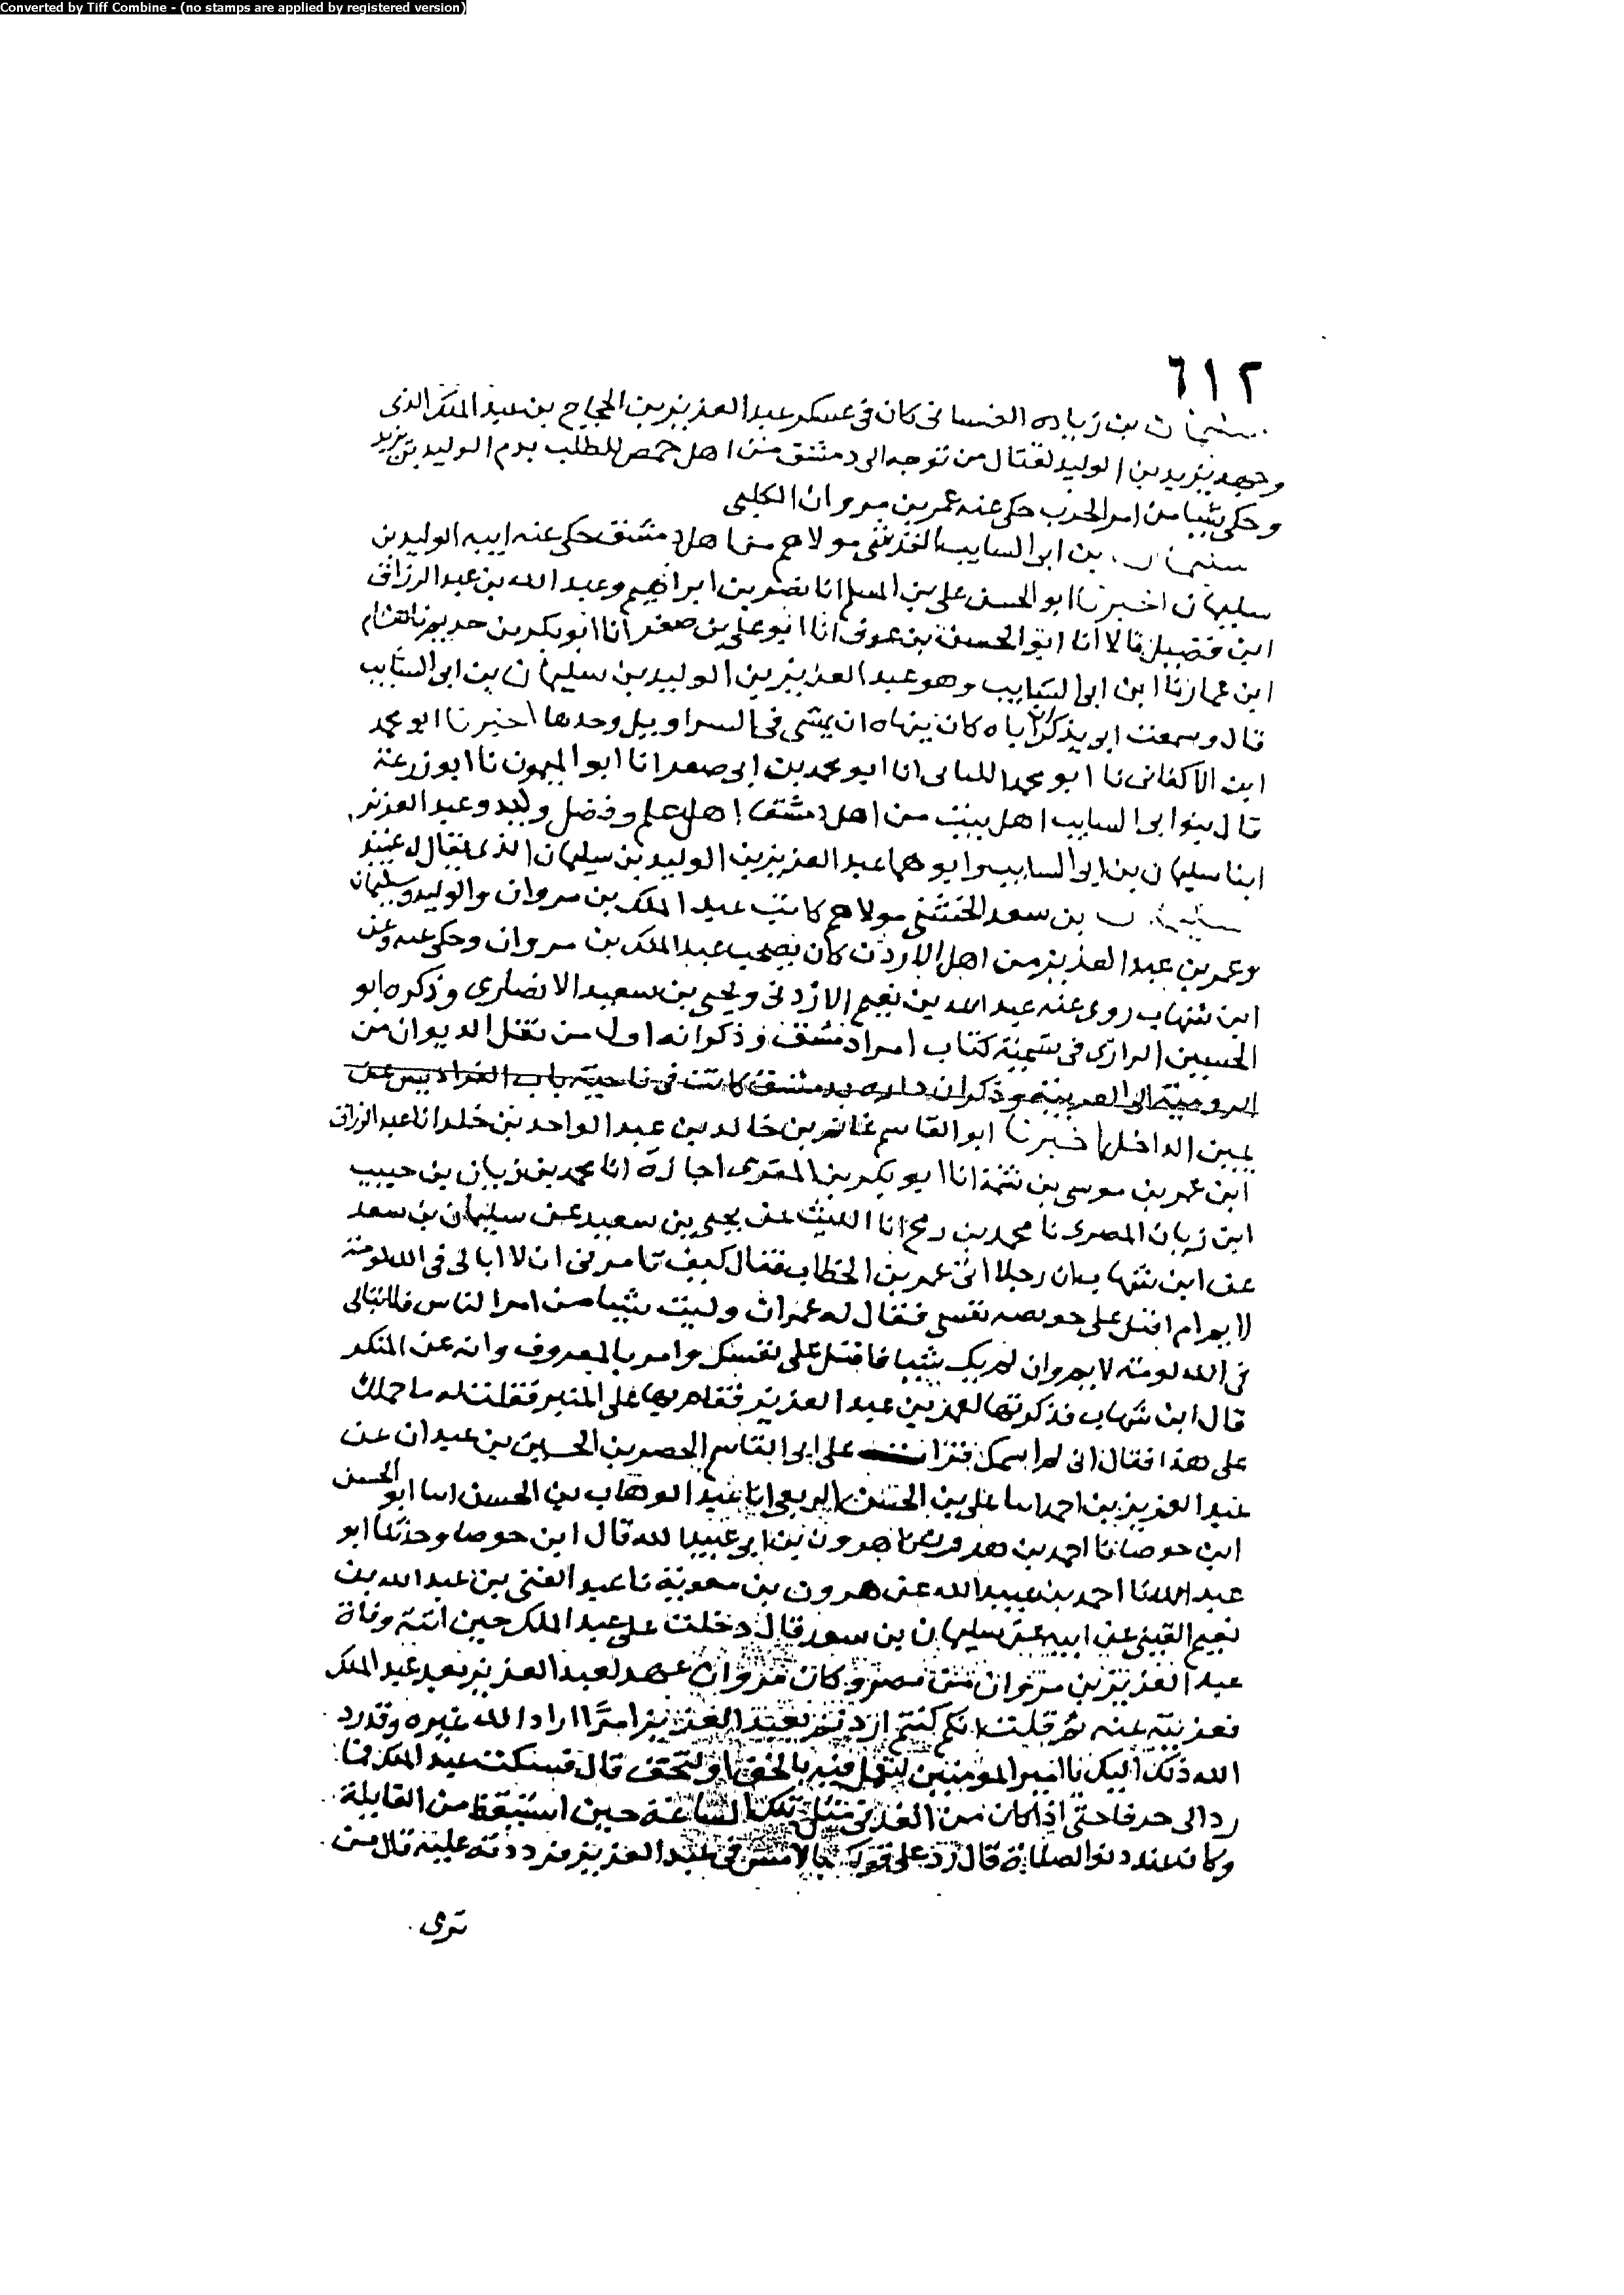 Converted by Tiff Combine - (no stamps are applied by registered version)
٦١٢
سليمان بن زياده الغساني كان في عسكر عبد العزيز بن الحجاج بن عبد الملك الذي
وجهه يزيد بن الوليد لقتال من توجه الى دمشق من اهل حمص للطلب بدم الوليد بن يزيد
وحكى شيا من امر الحرب حكى عنه عمر بن مروان الكلبى
سليمان بن ابى السايب القرشى مولاهم من اهل دمشق حكى عنه ابنه الوليد بن
سليمان اخبرنا ابو الحسن على بن المسلم انا نصر بن ابراهيم وعبد الله بن عبد الرزاق
ابن فضيل قالا انا ابو الحسن بن عوف انا ابو على بن منير انا ابو بكر بن خريم نا هشام
ابن عمار نا ابن ابى السايب وهو عبد العزيز بن الوليد بن سليمان بن ابى السايب
قال وسمعت ابى يذكر ان اباه كان ينهاه ان يمشى فى السراويل وحدها اخبرنا ابو محمد
ابن الاكفانى نا ابو محمد الكتانى انا ابو محمد بن ابى نصر انا ابو الميمون نا ابو زرعة
قال بنوا ابى السايب اهل بيت من اهل دمشق اهل علم وفضل وليد وعبد العزيز
ابنا سليمان بن ابى السايب وابوهما عبد العزيز بن الوليد بن سليمان الذى يقال له عزيز
سليمان بن سعد الخشنى مولاهم كاتب عبد الملك بن مروان والوليد وسليمان
وعمر بن عبد العزيز من اهل الاردن كان يصحب عبد الملك بن مروان وحكى عنه وعن
ابن شهاب روى عنه عبد الله بن نعيم الازدنى ويحيى بن سعيد الانصارى وذكره ابو
الحسين الرازى فى تسمية كتاب امرا دمشق وذكر انه اول من نقل الديوان من
الرومية الى العربية وذكر ان داره بدمشق كانت فى ناحية باب الفراديس عن
يمين الداخل اخبرنا ابو القاسم غانم بن خالد بن عبد الواحد بن خلد انا عبد الرزاق
ابن عمر بن موسى بن شمة انا ابو بكر بن المقرى اجازة انا محمد بن زبان بن حبيب
ابن زبان المصرى نا محمد بن رمح انا الليث عن يحيى بن سعيد عن سليمان بن سعد
عن ابن شهاب ان رجلا اتى عمر بن الخطاب فقال كيف تامرنى ان لا ابالى فى الله لومة
لايم ام اقبل على خويصه نفسى فقال له عمر ان وليت شيا من امر الناس فلا تبالى
فى الله لومة لايم وان لم يك شيا فاقبل على نفسك وامر بالمعروف وانه عن المنكر
قال ابن شهاب فذكرتها لعمر بن عبد العزيز فقام بها على المنبر فقلت له ما حملك
على هذا فقال انى لم اسمك قرات على ابى القاسم الخضر بن الحسين بن عبدان عن
عبد العزيز بن احمد انا على بن الحسن الربعى انا عبد الوهاب بن الحسن انا ابو الحسن
ابن جوصا نا احمد بن هارون نا هرون بن ابى عبيد الله قال ابن جوصا وحدثنا ابو
عبد الله نا احمد بن عبيد الله عن هرون بن معوية نا عبد الغنى بن عبد الله بن
نعيم القينى عن ابيه عن سليمان بن سعد قال دخلت على عبد الملك حين اتته وفاة
عبد العزيز بن مروان من مصر وكان مروان عهد لعبد العزيز بعد عبد الملك
فعزيته عنه ثم قلت انكم كنتم اردتم بعبد العزيز امرا اراد الله غيره وقد رد
الله ذلك اليك يا امير المومنين لتعمل فيه بالحق قال فسكت عبد الملك فما
رد الى حرفا حتى اذا كان من الغد فى مثل تلك الساعة حين استيقظ من القايلة
وكان عند دنو الصلاة قال رد على قولك بالامس فى عبد العزيز فرددته عليه قال من
ترى